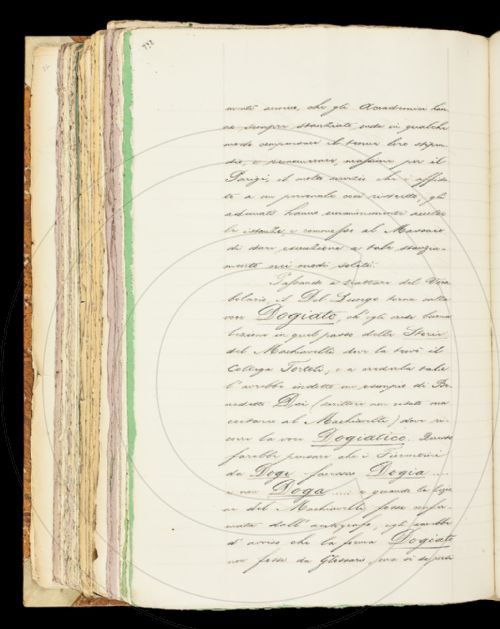 che gli Accademici han
no sempre stanziata, onde in qualche
modo compensare il tenue loro stipen
dio, e per
Parigi, il molto che è affida
to a un personale così ristretto, gli
adunati hanno unanimemente accolto
la istanza, e commesso al Massaro
di dare esecuzione a tale stanzia
mento nei modi soliti.
Passando a trattare del Voca
bolario, il Del Lungo torna sulla
voce Dogiato, ch'egli crede buona
lezione in quel passo delle Storie
del Machiavelli dove la trovò il
Collega Tortoli, e a crederla tale
l'avrebbe indotto un esempio di Be
nedetto Dei (scrittore non
al Machiavelli) dove ri
corre la voce Dogiatico. Questo
farebbe pensare che i Fiorentini
da Dogi facessero Dogia....
e non Doga.... e quando la lezio
ne del Machiavelli fosse confer
mata dall'autografo, egli sarebbe
d'avviso che la forma Dogiato
non fosse da Glossario, ma si